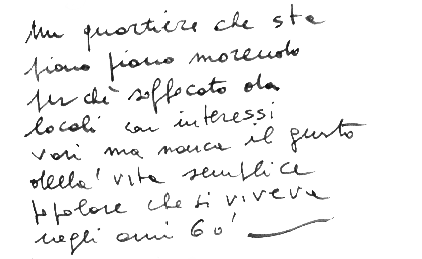 Un quartiere che sta
piano piano morendo
perchè soffocato da
locali con interessi
vari ma manca il gusto
della' vita semplice
popolare che si viveva
negli anni 60'